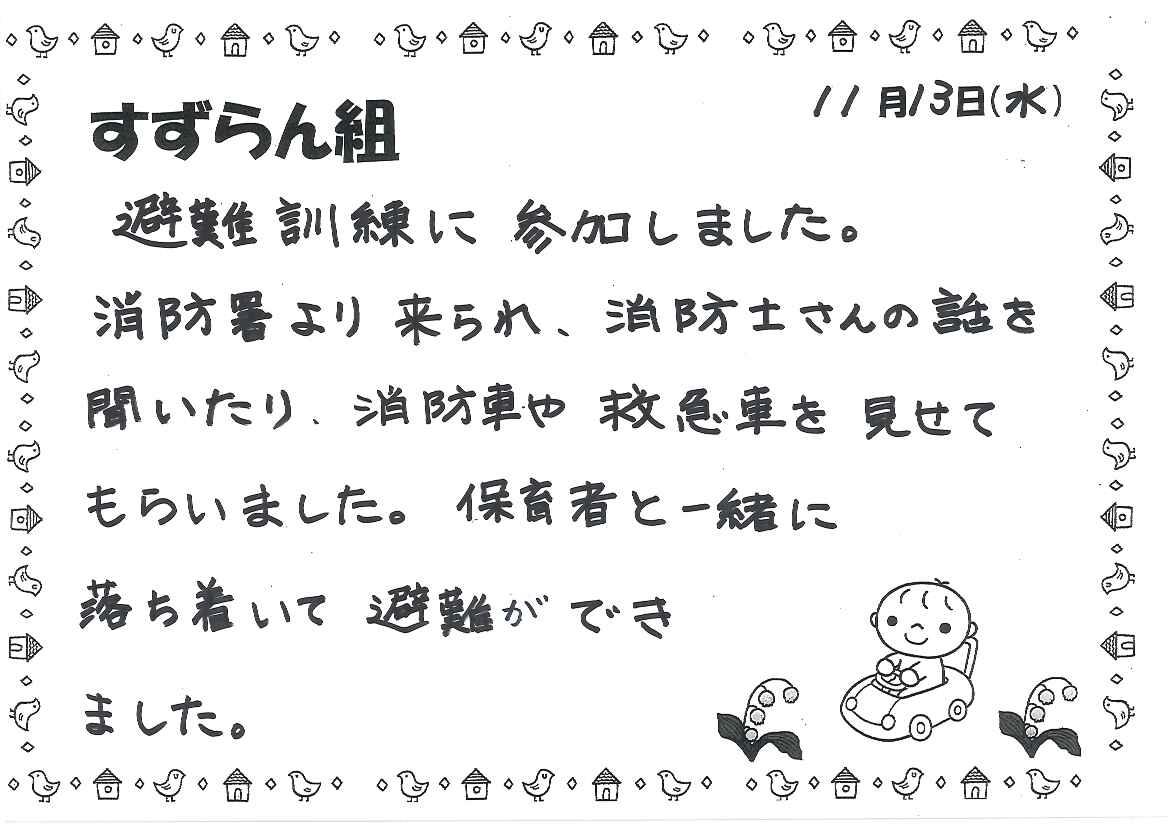 11月13日(水)
すずらん組
避難訓練に参加しました。
消防署より来られ、消防士さんの話を
聞いたり、消防車や救急車を見せて
もらいました。保育者と一緒に
落ち着いて避難ができ
ました。